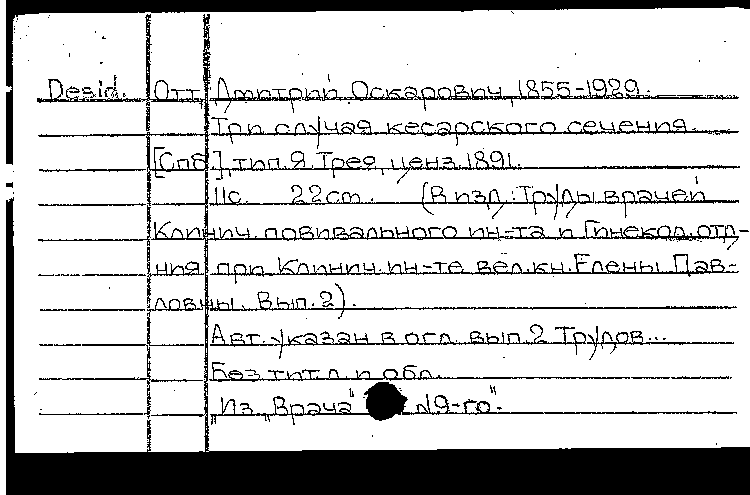 Desid. Отт, Дмитрий Оскарович, 1855-1929.
Три случая кесарского сечения.
[Спб], тип. Я. Трея, ценз. 1891.
11с. 22cm. (В изд.: Труды врачей
Клинич. повивального ин-та и Гинекол. отд-
ния при Клинич. ин-те вел. кн. Елены Пав-
ловны. Вып. 2).
Авт. указан в огл. вып. 2 Трудов...
Без тит. л. и обл.
"Из "Врача" №9-го".